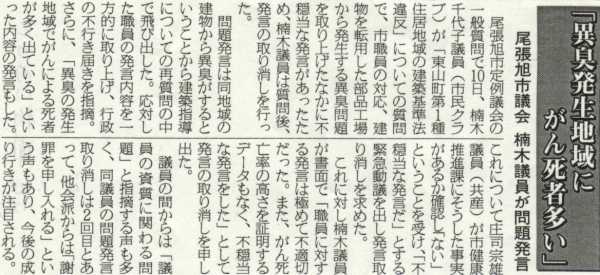 「異臭発生地域に
がん死者多い」
尾張旭市議会 楠木議員が問題発言
尾張旭市定例議会の
一般質問で10日、楠木
千代子議員（市民クラ
ブ）が「東山町第１種
住居地域の建築基準法
違反」についての質問
で、市職員の対応、建
物を転用した部品工場
から発生する異臭問題
を取り上げたなかに不
穏当な発言があったた
め、楠木議員は質問後、
発言の取り消しを行っ
た。
問題発言は同地域の
建物から異臭がすると
いうことから建築指導
についての再質問の中
で飛び出した。応対し
た職員の発言内容を一
方的に取り上げ、行政
の不行き届きを指摘。
さらに、「異臭の発生
地域でがんによる死者
が多く出ている」とい
った内容の発言もした。
これについて庄司宗雄
議員（共産）が市健康
推進課にそうした事実
があるか確認。「ない」
ということを受け、「不
穏当な発言だ」とする
緊急動議を出し発言取
り消しを求めた。
これに対し楠木議員
が書面で「職員に対す
る発言は極めて不適切
だった。また、がん死
亡率の高さを証明する
データもなく、不穏当
な発言をした」として
発言の取り消しを申し
出た。
議員の間からは「議
員の資質に関わる問
題」と指摘する声も多
く、同議員の問題発言
取り消しは２回目とあ
って、他会派からは「謝
罪を申し入れる」とい
う声もあり、今後の成
り行きが注目される。